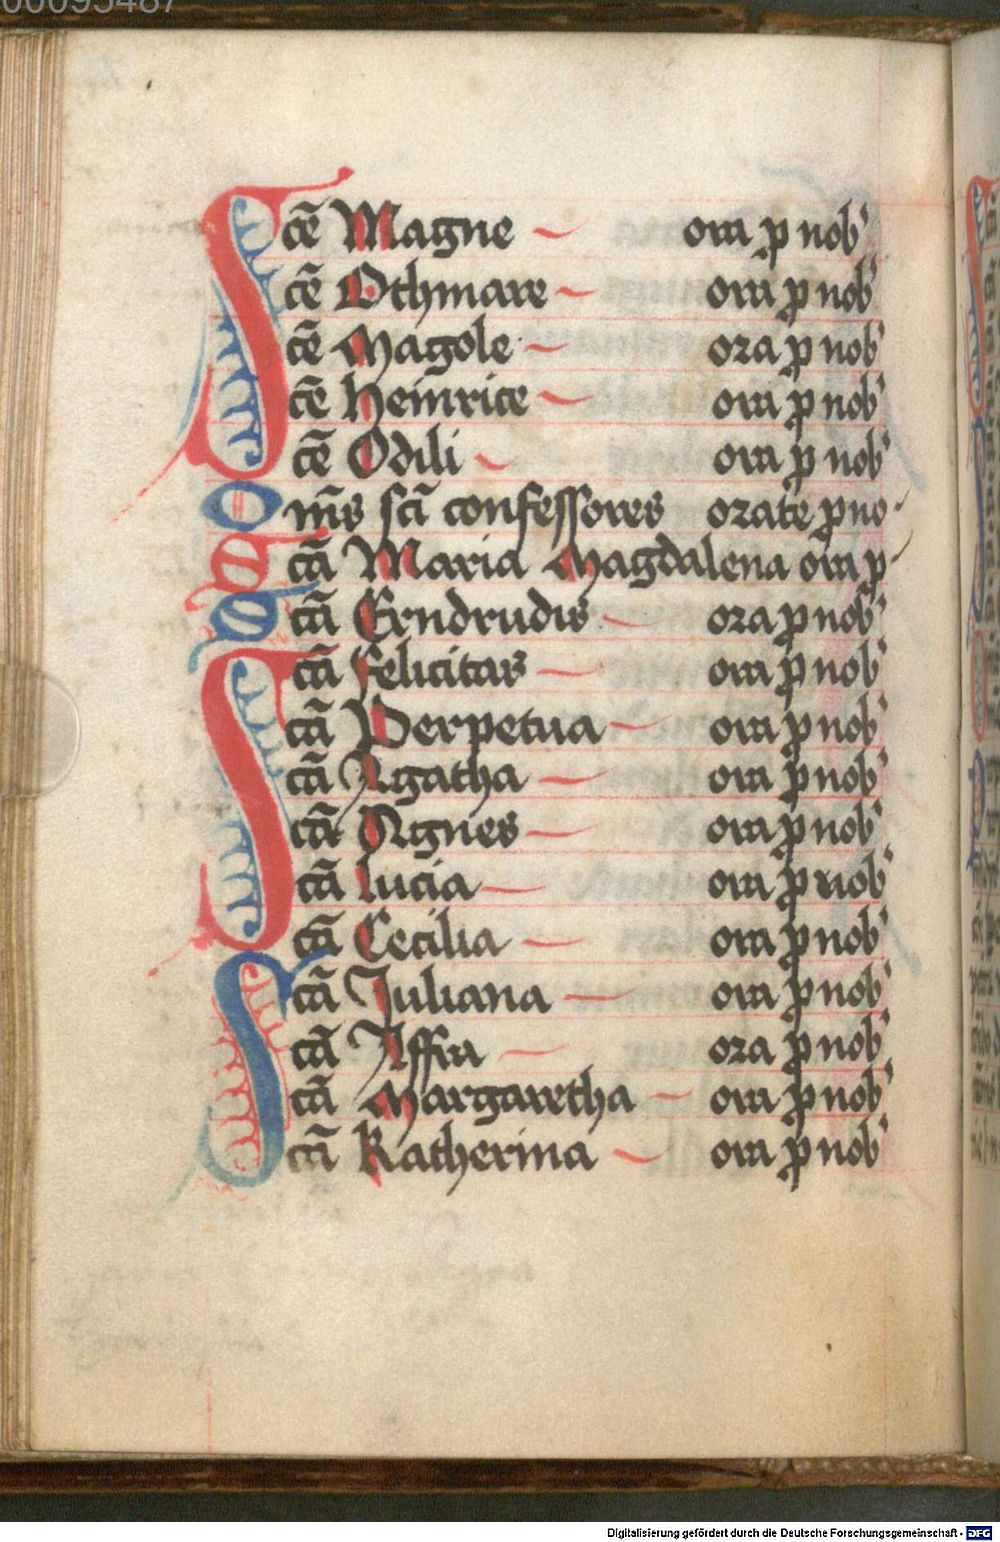 00095487
Scē Magne ora p nob
Scē Othmare ora p nob
Scē Magole ora p nob
Scē Heinrice ora p nob
Scē Odili ora p nob
Om̄s scī confessores orate p no
Scā Maria Magdalena ora p
Scā Erndrudis ora p nob
Scā Felicitas ora p nob
Scā Perpetua ora p nob
Scā Agatha ora p nob
Scā Agnes ora p nob
Scā Lucia ora p nob
Scā Cecilia ora p nob
Scā Juliana ora p nob
Scā Affra ora p nob
Scā Margaretha ora p nob
Scā Katherina ora p nob
Digitalisierung gefördert durch die Deutsche Forschungsgemeinschaft - DFG